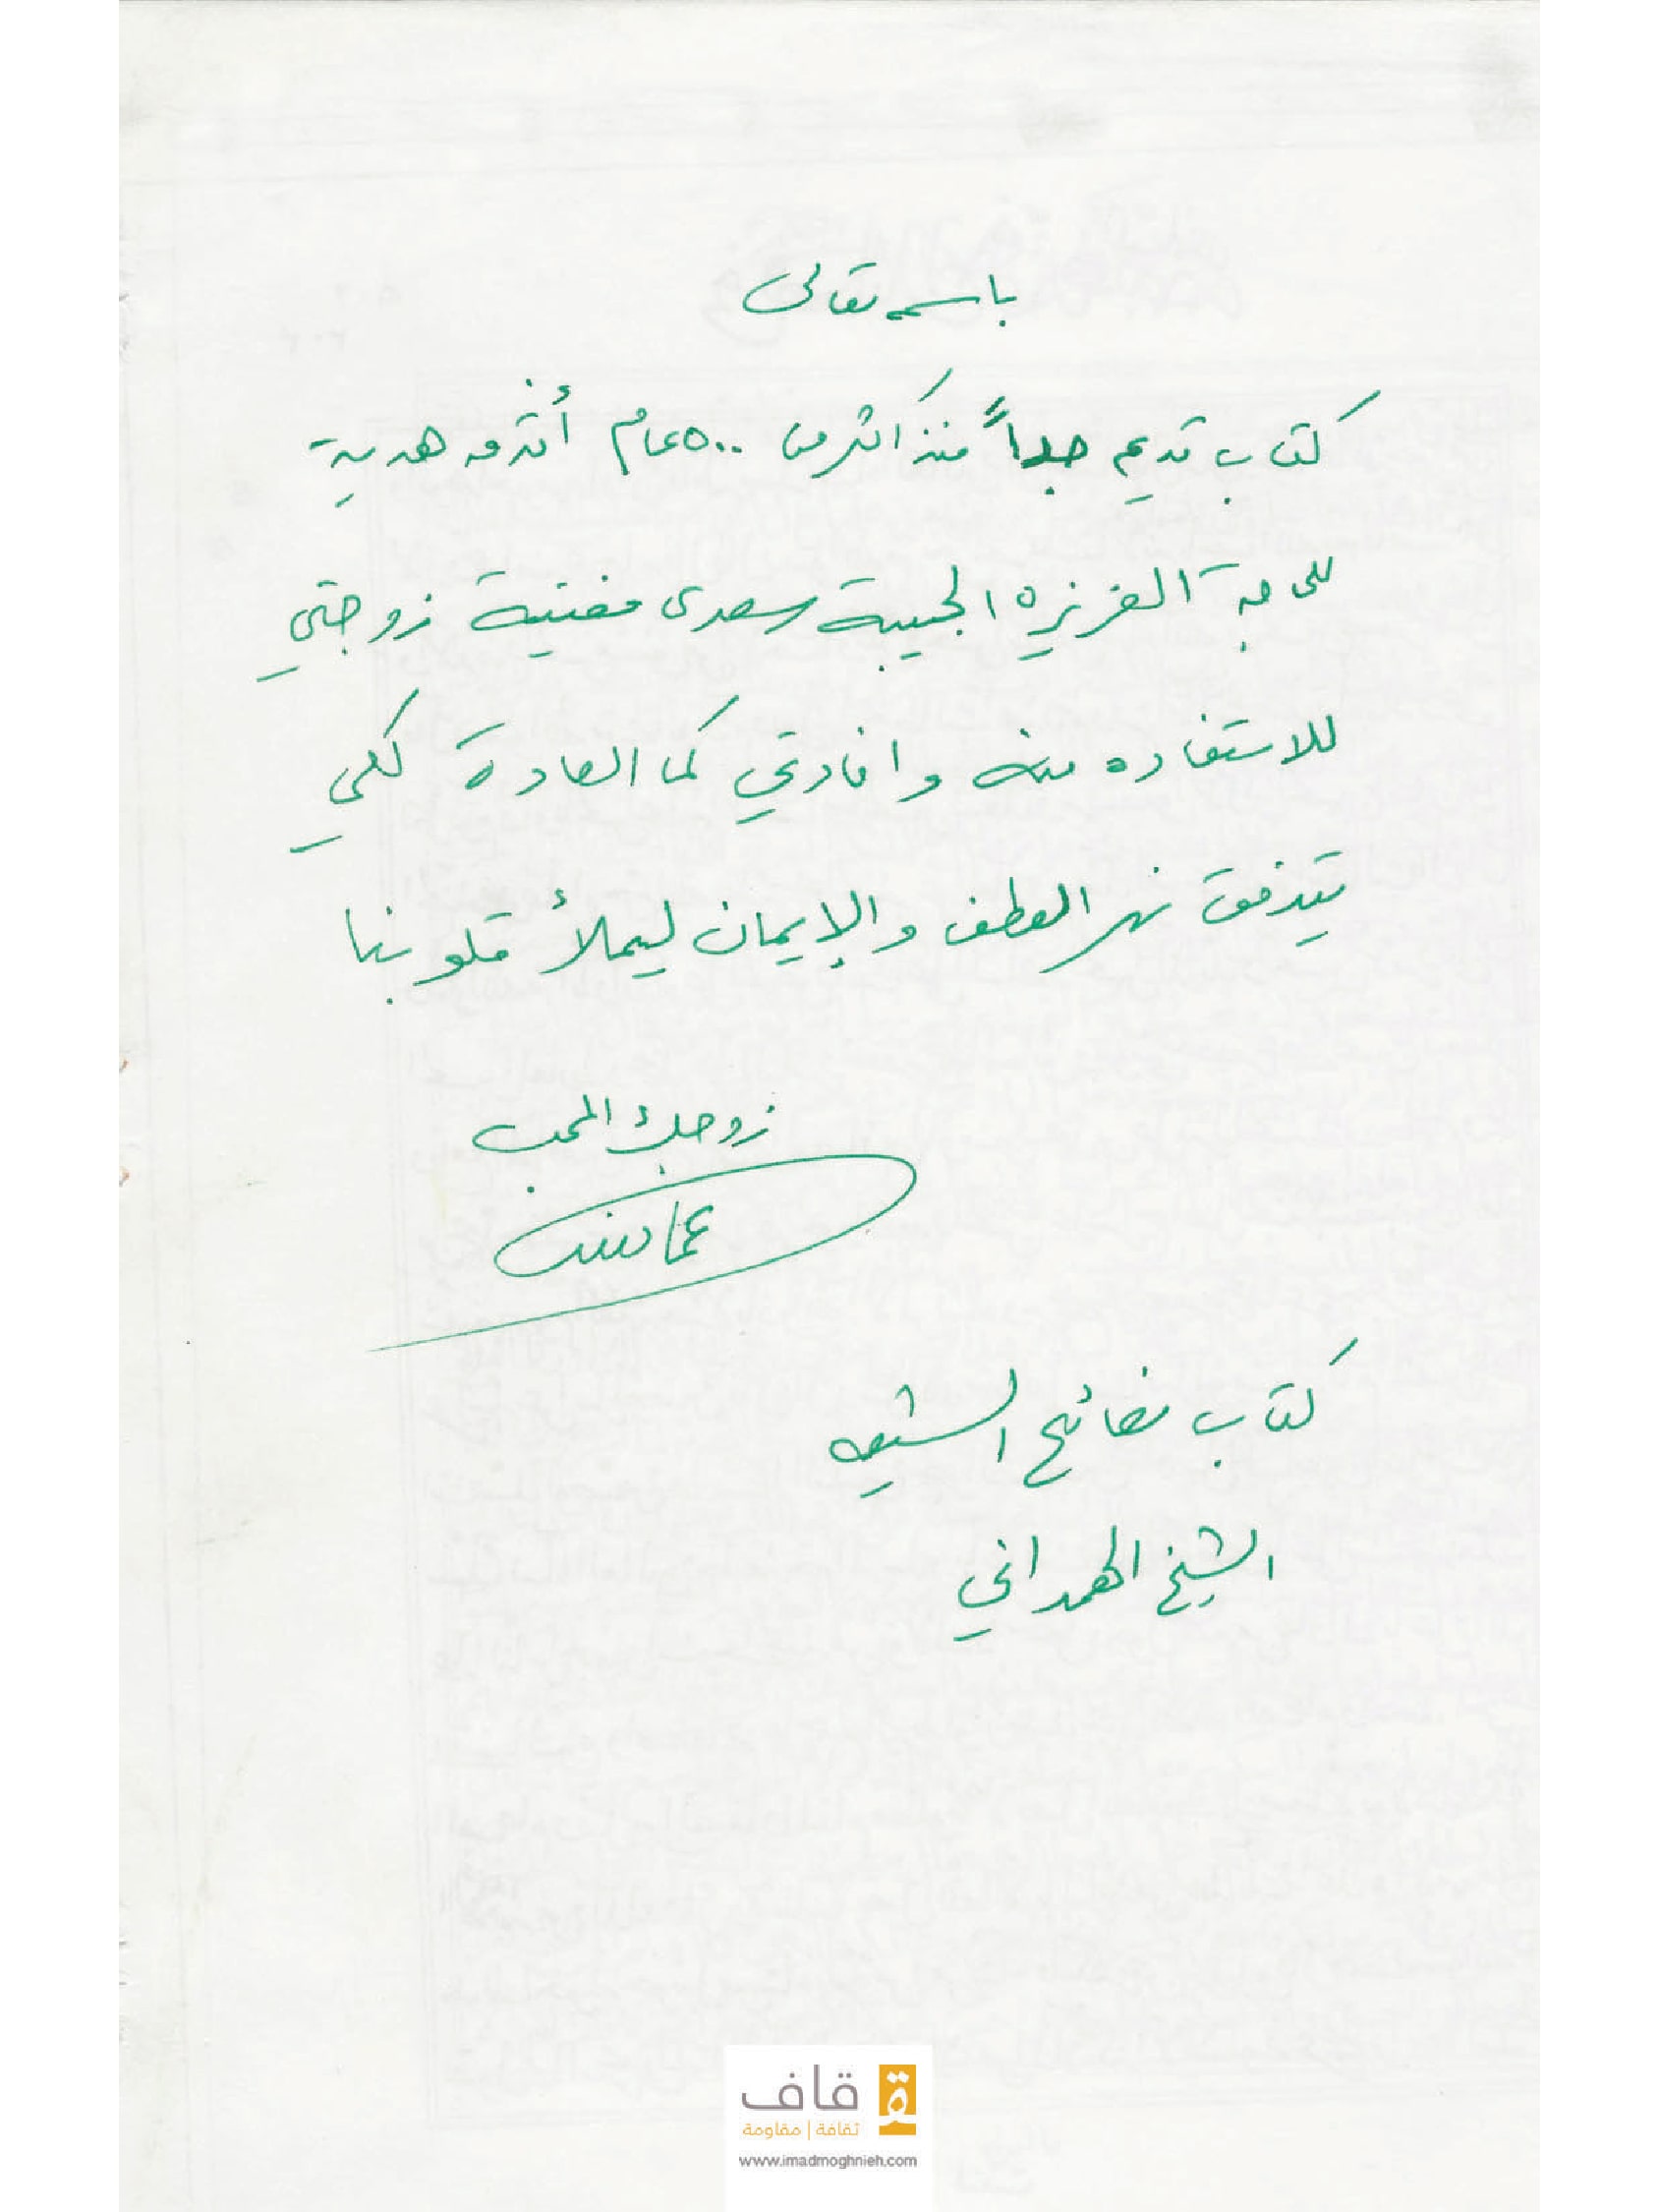 باسمه تعالى
كتاب قديم جداً منذ اكثر من ٥٠٠ عام أقدمه هدية
للحاجة العزيزه الحبيبة سعدى مغنية زوجتي
للاستفاده منه وافادتي كما العادة لكي
يتدفق نهر العطف والإيمان ليملأ قلوبنا
زوجك المحب
عماد
كتاب فضائح الشيعه
الشيخ الهمداني
قاف
ثقافة | مقاومة
www.imadmoghnieh.com